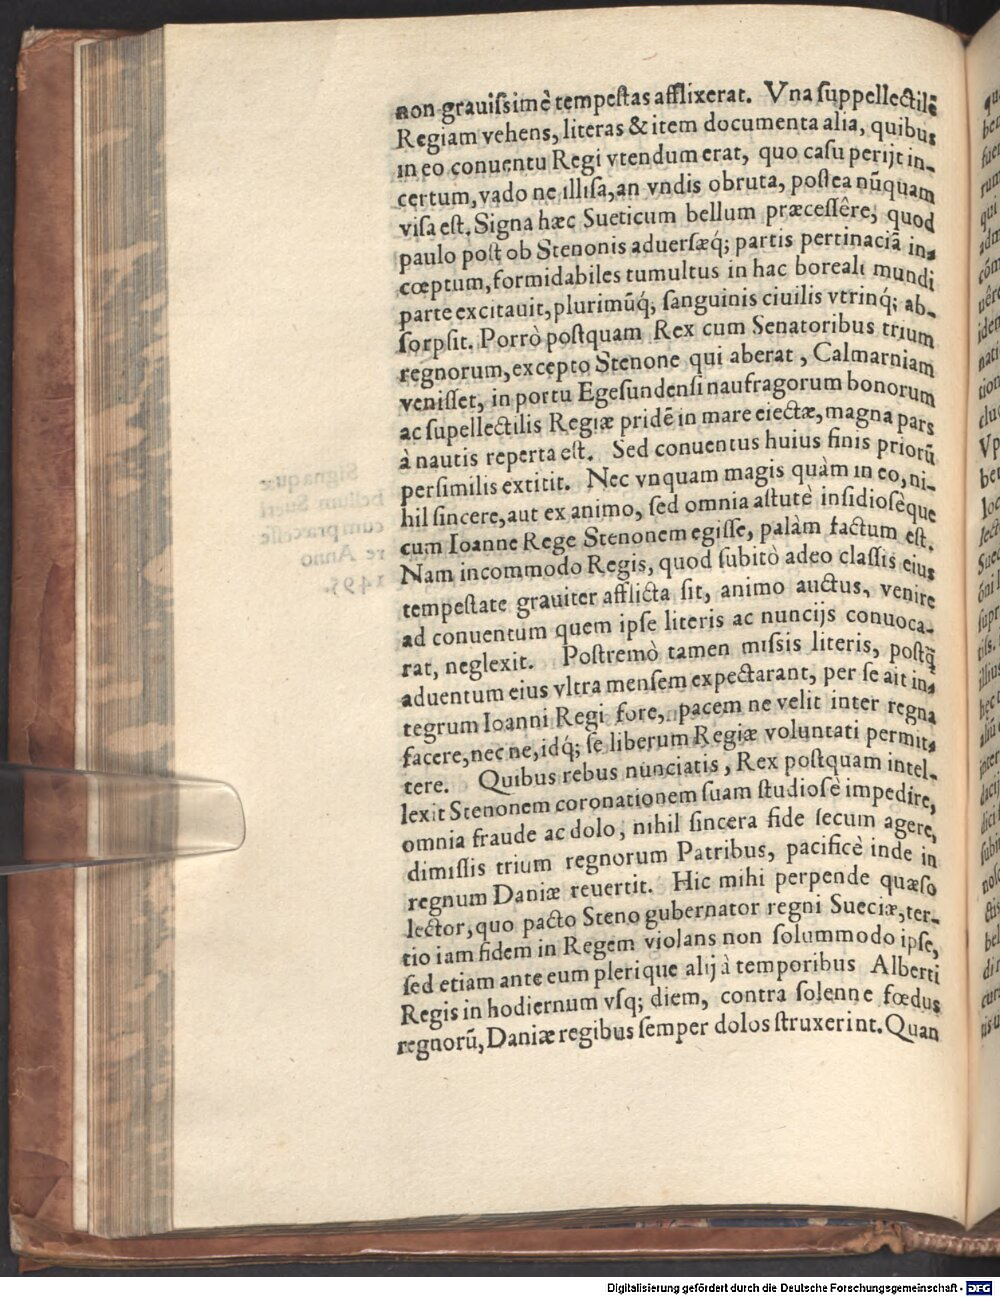 non grauiſsimè tempeſtas afflixerat. Vna ſuppellectilẽ
Regiam vehens, literas & item documenta alia, quibus
in eo conuentu Regi vtendum erat, quo caſu perijt in-
certum, vado ne illiſa, an vndis obruta, poſtea nũquam
viſa eſt. Signa hæc Sueticum bellum præceſſêre, quod
paulo poſt ob Stenonis aduerſæq́; partis pertinaciã in-
cœptum, formidabiles tumultus in hac boreali mundi
parte excitauit, plurimũq́; ſanguinis ciuilis vtrinq́; ab-
ſorpſit. Porrò poſtquam Rex cum Senatoribus trium
regnorum, excepto Stenone qui aberat, Calmarniam
veniſſet, in portu Egeſundenſi naufragorum bonorum
ac ſupellectilis Regiæ pridẽ in mare eiectæ, magna pars
à nautis reperta eſt. Sed conuentus huius finis priorũ
perſimilis extitit. Nec vnquam magis quàm in eo, ni-
hil ſincere, aut ex animo, ſed omnia aſtutè inſidioſèque
cum Ioanne Rege Stenonem egiſſe, palàm factum eſt.
Nam incommodo Regis, quod ſubitò adeo claſſis eius
tempeſtate grauiter afflicta ſit, animo auctus, venire
ad conuentum quem ipſe literis ac nuncijs conuoca-
rat, neglexit. Poſtremò tamen miſsis literis, poſtq̃
aduentum eius vltra menſem expectarant, per ſe ait in-
tegrum Ioanni Regi fore, pacem ne velit inter regna
facere, nec ne, idq́; ſe liberum Regiæ voluntati permit-
tere. Quibus rebus nunciatis, Rex poſtquam intel-
lexit Stenonem coronationem ſuam ſtudioſè impedire,
omnia fraude ac dolo, nihil ſincera fide ſecum agere,
dimiſſis trium regnorum Patribus, pacificè inde in
regnum Daniæ reuertit. Hic mihi perpende quæſo
lector, quo pacto Steno gubernator regni Sueciæ, ter-
tio iam fidem in Regem violans non ſolummodo ipſe,
ſed etiam ante eum plerique alij à temporibus Alberti
Regis in hodiernum vſq; diem, contra ſolenne fœdus
regnorũ, Daniæ regibus ſemper dolos ſtruxerint. Quan
Digitalisierung gefördert durch die Deutsche Forschungsgemeinschaft - DFG